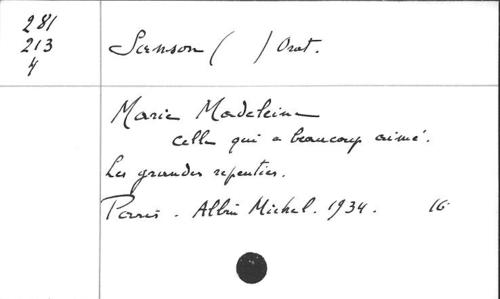 281
213
4
Sanson ( ) Orat.
Marie Madeleine
celle qui a beaucoup aimé.
Les grandes repenties.
Paris. Albin Michel. 1934. 16